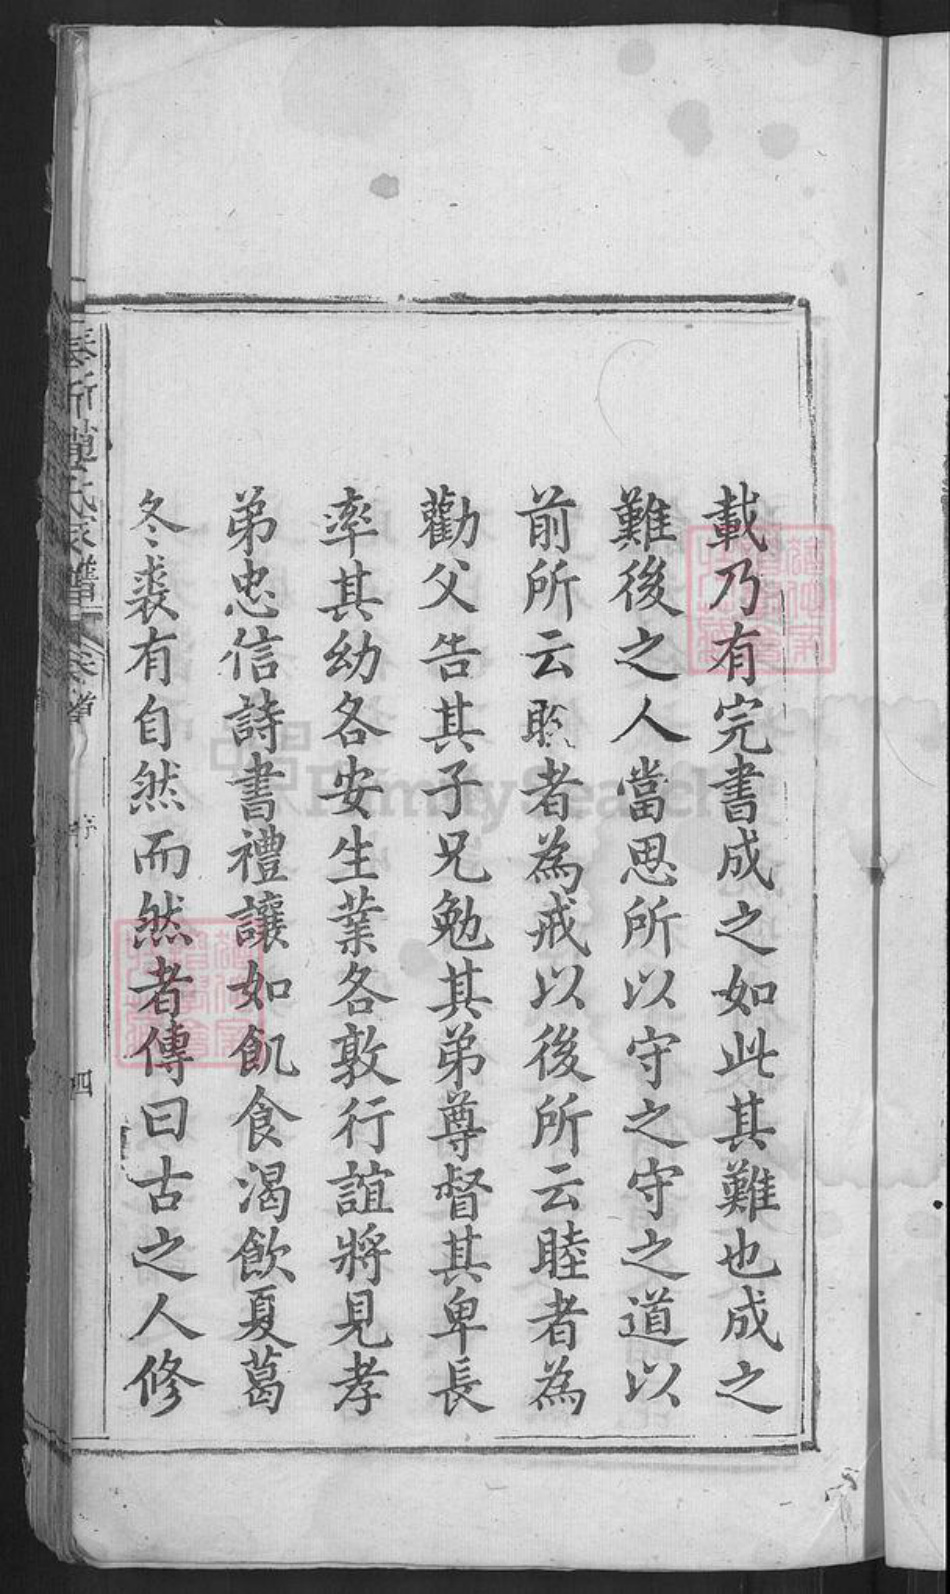 載乃有完書成之如此其難也成之
難後之人當思所以守之守之道以
前所云者為戒以後所云睦者為
勸父告其子兄勉其弟尊督其卑長
率其幼各安生業各敦行誼將見孝
弟忠信詩書禮讓如飢食渴飲夏葛
冬裘有自然而然者傳曰古之人修
趙氏家譜 卷首 序 四
FamilySearch